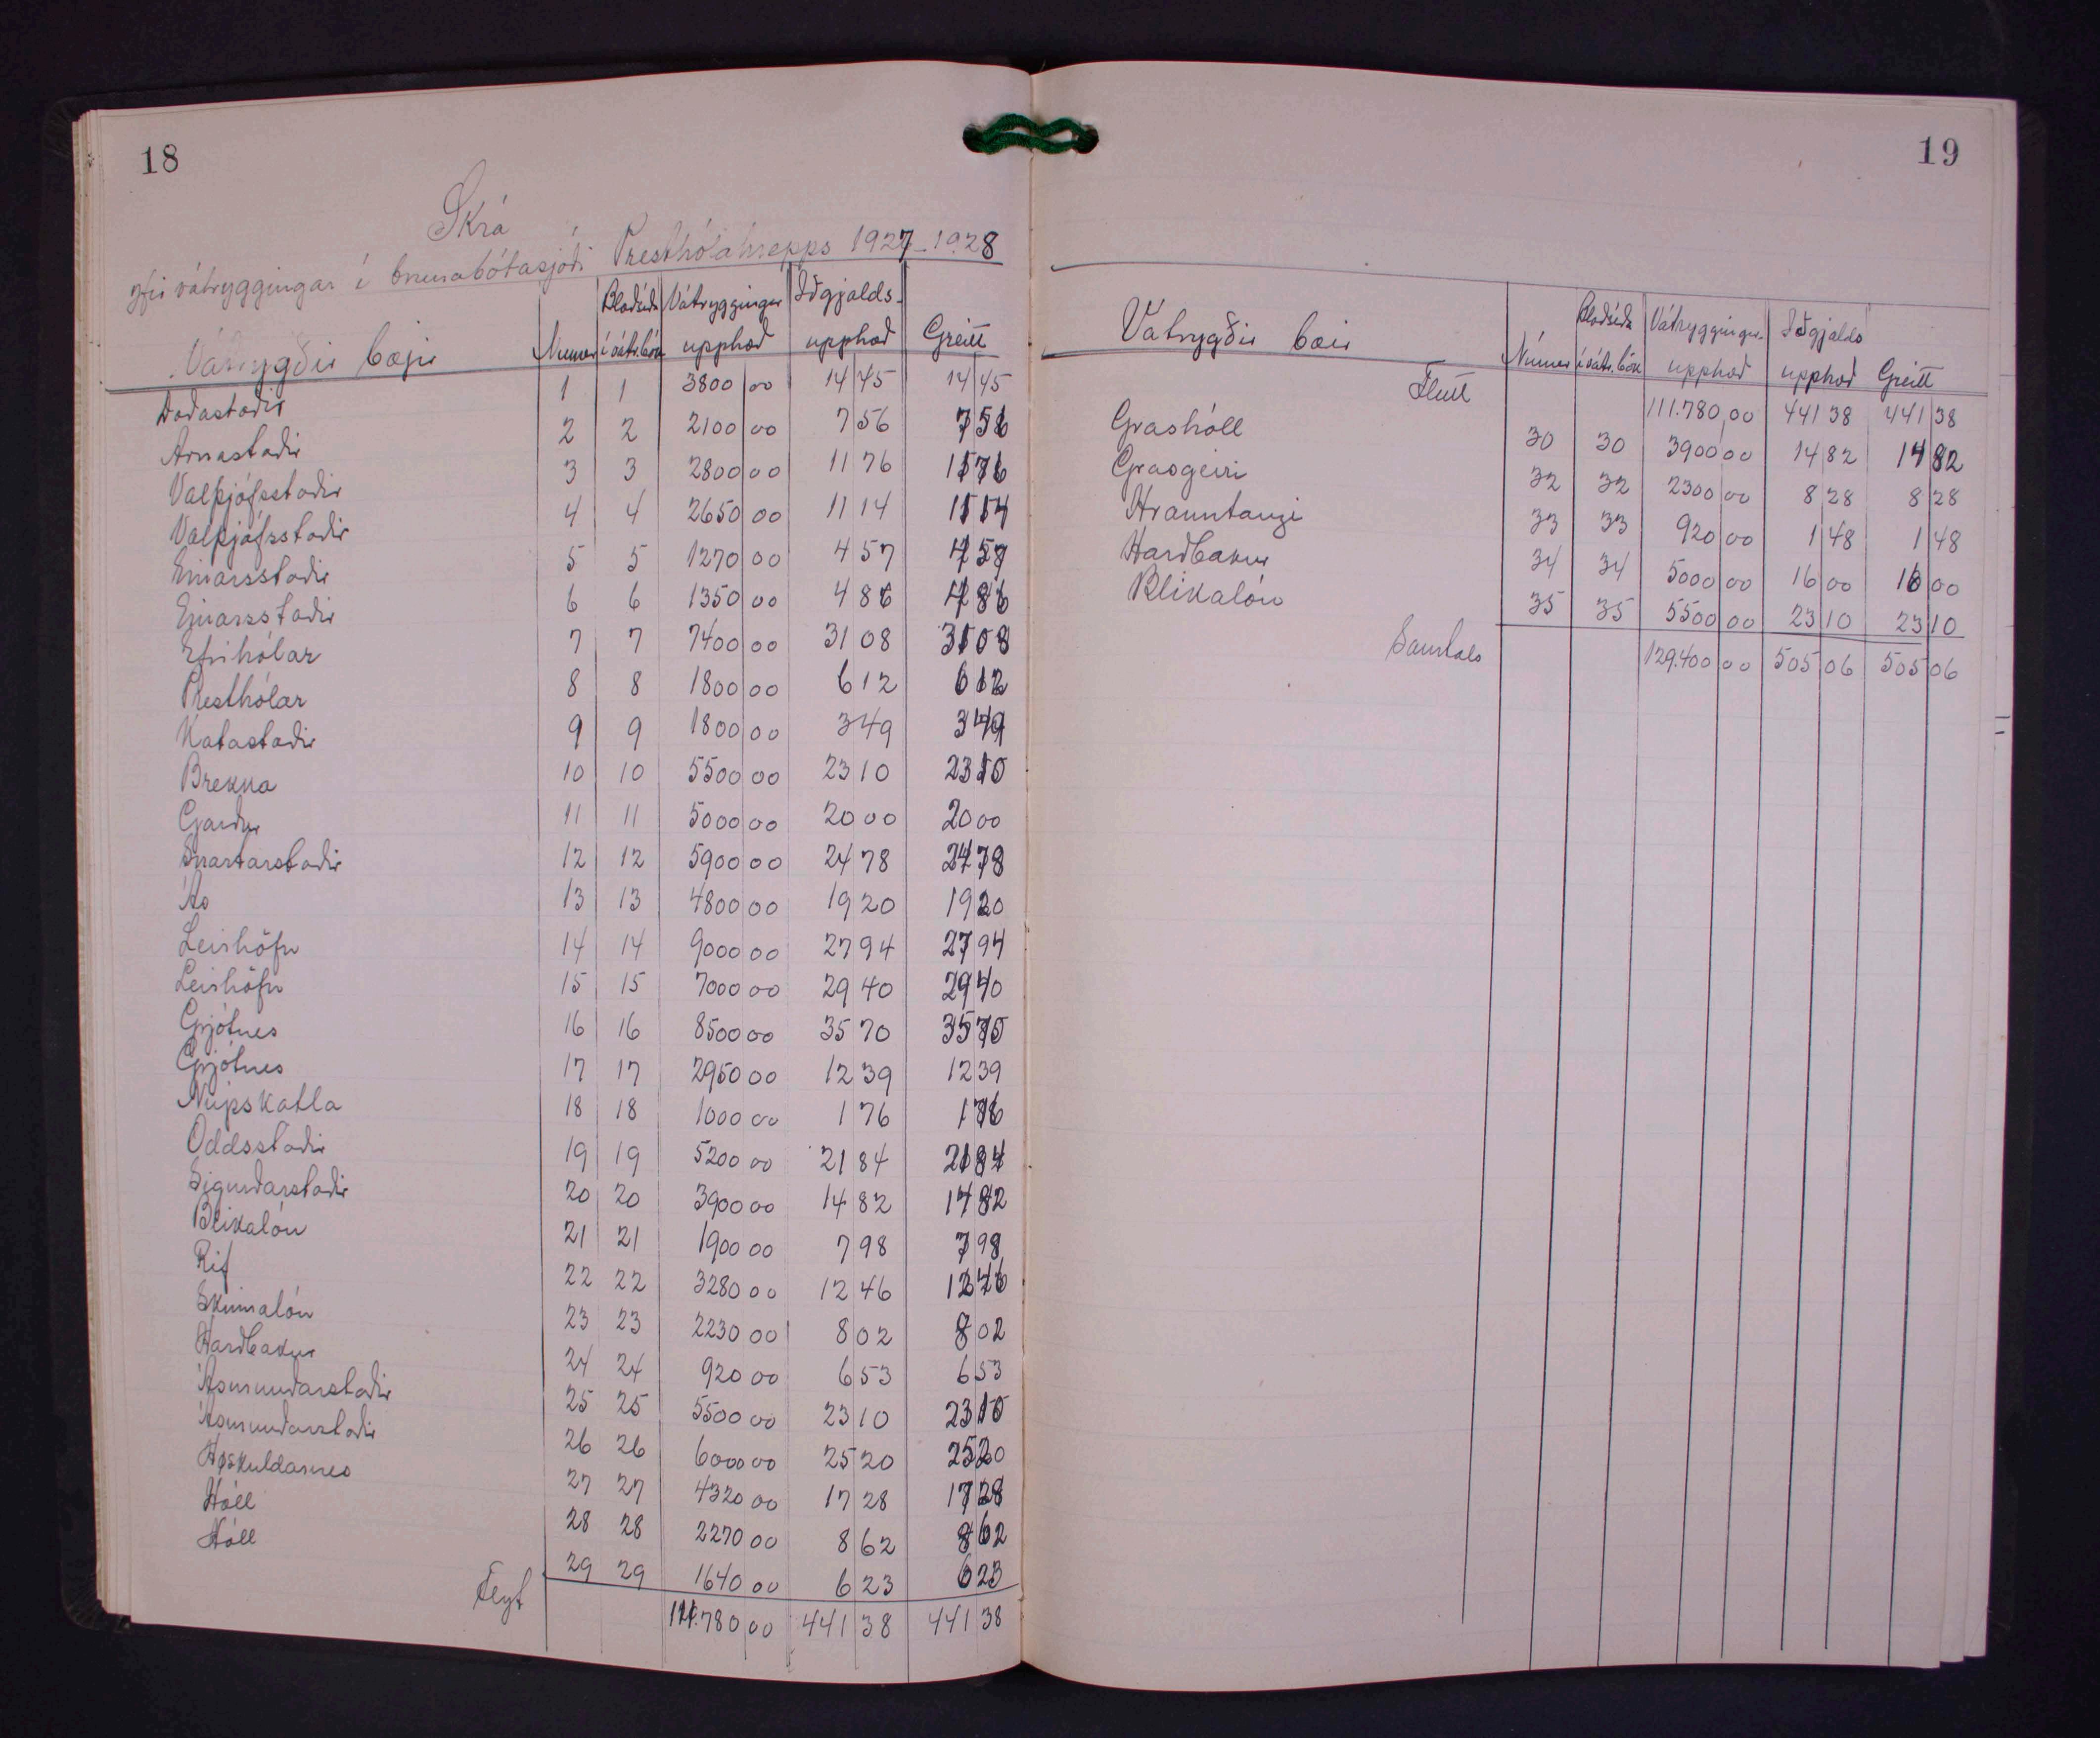 18
Skrá
yfir vátryggingar í brunabótasjóði Presthólahrepps 1927-1928
Vátrygðir bæjir Númer Blaðsíða í vátr.bók Vátryggingar upphæð Iðgjalds- upphæð Greitt
Daðastaðir 1 1 3800 00 14 45 14 45
Arnastaðir 2 2 2100 00 7 56 7 56
Valþjófsstaðir 3 3 2800 00 11 76 11 76
Valþjófsstaðir 4 4 2650 00 11 14 11 14
Einarsstaðir 5 5 1270 00 4 57 4 57
Einarsstaðir 6 6 1350 00 4 86 4 86
Efrihólar 7 7 7400 00 31 08 31 08
Presthólar 8 8 1800 00 6 12 6 12
Katastaðir 9 9 1800 00 3 49 3 49
Brekka 10 10 5500 00 23 10 23 10
Garður 11 11 5000 00 20 00 20 00
Snartarstaðir 12 12 5900 00 24 78 24 78
Ás 13 13 4800 00 19 20 19 20
Leirhöfn 14 14 9000 00 27 94 27 94
Leirhöfn 15 15 7000 00 29 40 29 40
Grjótnes 16 16 8500 00 35 70 35 70
Grjótnes 17 17 2950 00 12 39 12 39
Núpskatla 18 18 1000 00 1 76 1 76
Oddsstaðir 19 19 5200 00 21 84 21 84
Sigurðarstaðir 20 20 3900 00 14 82 14 82
Blikalón 21 21 1900 00 7 98 7 98
Rif 22 22 3280 00 12 46 12 46
Skinnalón 23 23 2230 00 8 02 8 02
Harðbakur 24 24 920 00 6 53 6 53
Ásmundarstaðir 25 25 5500 00 23 10 23 10
Ásmundarstaðir 26 26 6000 00 25 20 25 20
Höskuldarnes 27 27 4320 00 17 28 17 28
Hóll 28 28 2270 00 8 62 8 62
Hóll 29 29 1640 00 6 23 6 23
Flyt 111.780 00 441 38 441 38
19
Vátrygðir bæir Númer Blaðsíða í vátr.bók Vátryggingar- upphæð Iðgjalds upphæð Greitt
Flutt 111.780,00 441 38 441 38
Grashóll 30 30 3900 00 14 82 14 82
Grasgeiri 32 32 2300 00 8 28 8 28
Hrauntangi 33 33 920 00 1 48 1 48
Harðbakur 34 34 5000 00 16 00 16 00
Blikalón 35 35 5500 00 23 10 23 10
Samtals 129.400 00 505 06 505 06